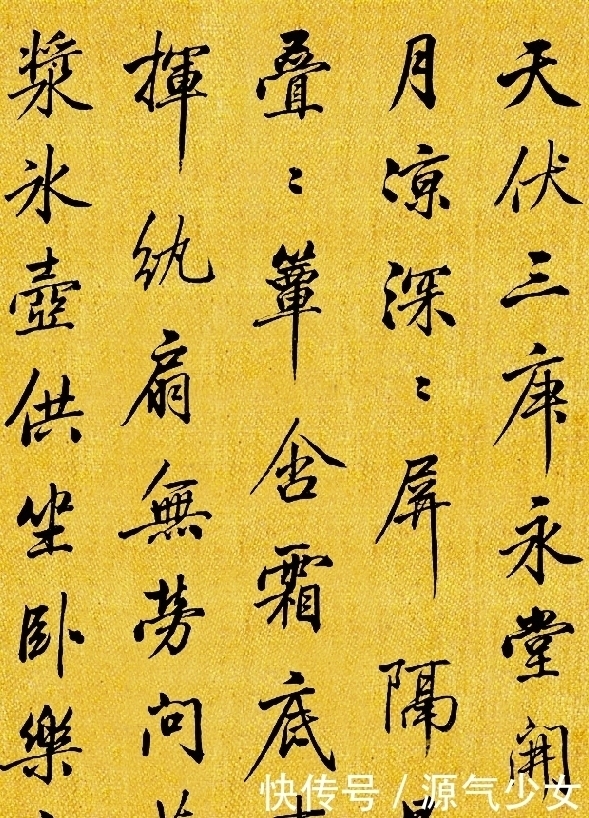 天伏三庚永堂開
月凉深〻屏隔
疊〻簟含霜底
揮紈扇無勞問
漿氷壺供坐卧樂
快传号 / 源气少女